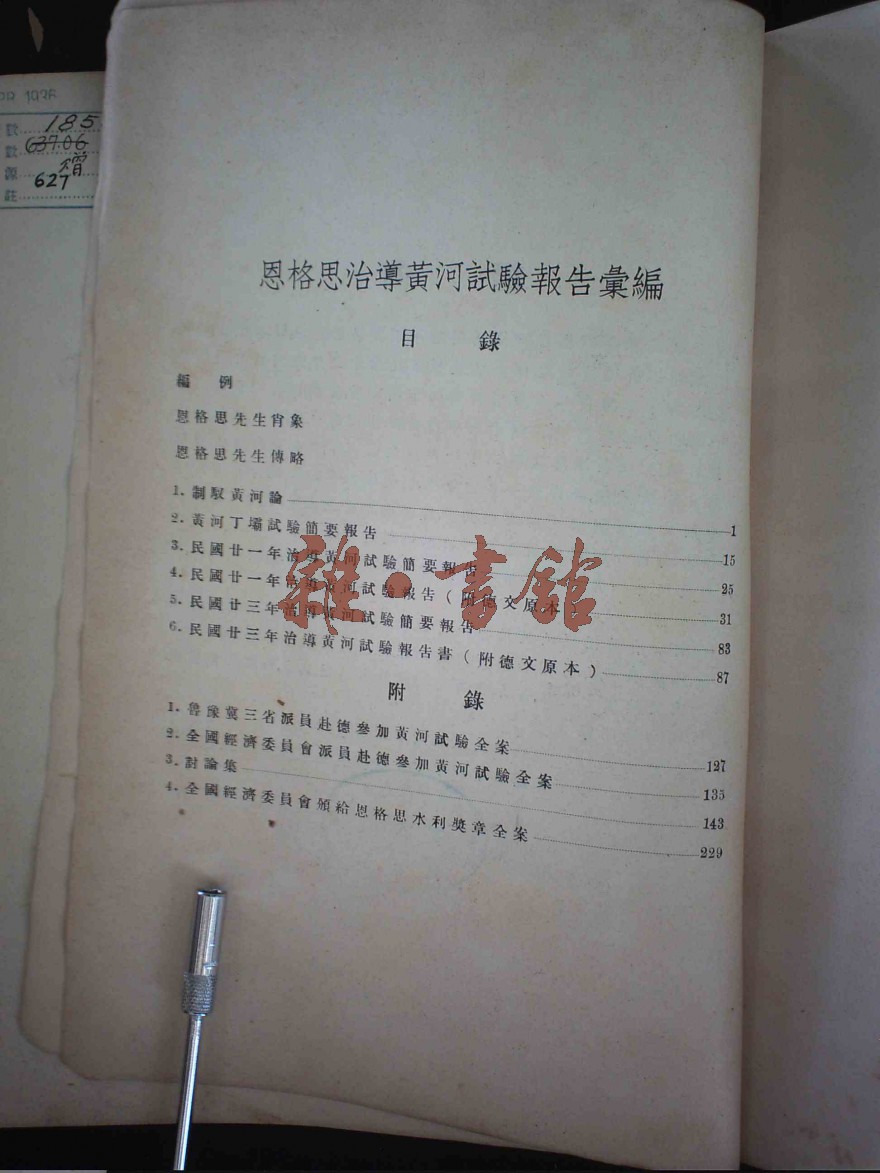 1936
數 185
數 637.06
源 贈
627
註
恩格思治導黃河試驗報告彙編
目 錄
編 例
恩格思先生肖象
恩格思先生傳略
1. 制馭黃河論 1
2. 黃河丁壩試驗簡要報告 15
3. 民國廿一年治導黃河試驗簡要報告 25
4. 民國廿一年治導黃河試驗報告(附德文原本) 31
5. 民國廿三年治導黃河試驗簡要報告 83
6. 民國廿三年治導黃河試驗報告書(附德文原本) 87
附 錄
1. 魯豫冀三省派員赴德參加黃河試驗全案 127
2. 全國經濟委員會派員赴德參加黃河試驗全案 135
3. 討論集 143
4. 全國經濟委員會頒給恩格思水利獎章全案 229
雜·書館